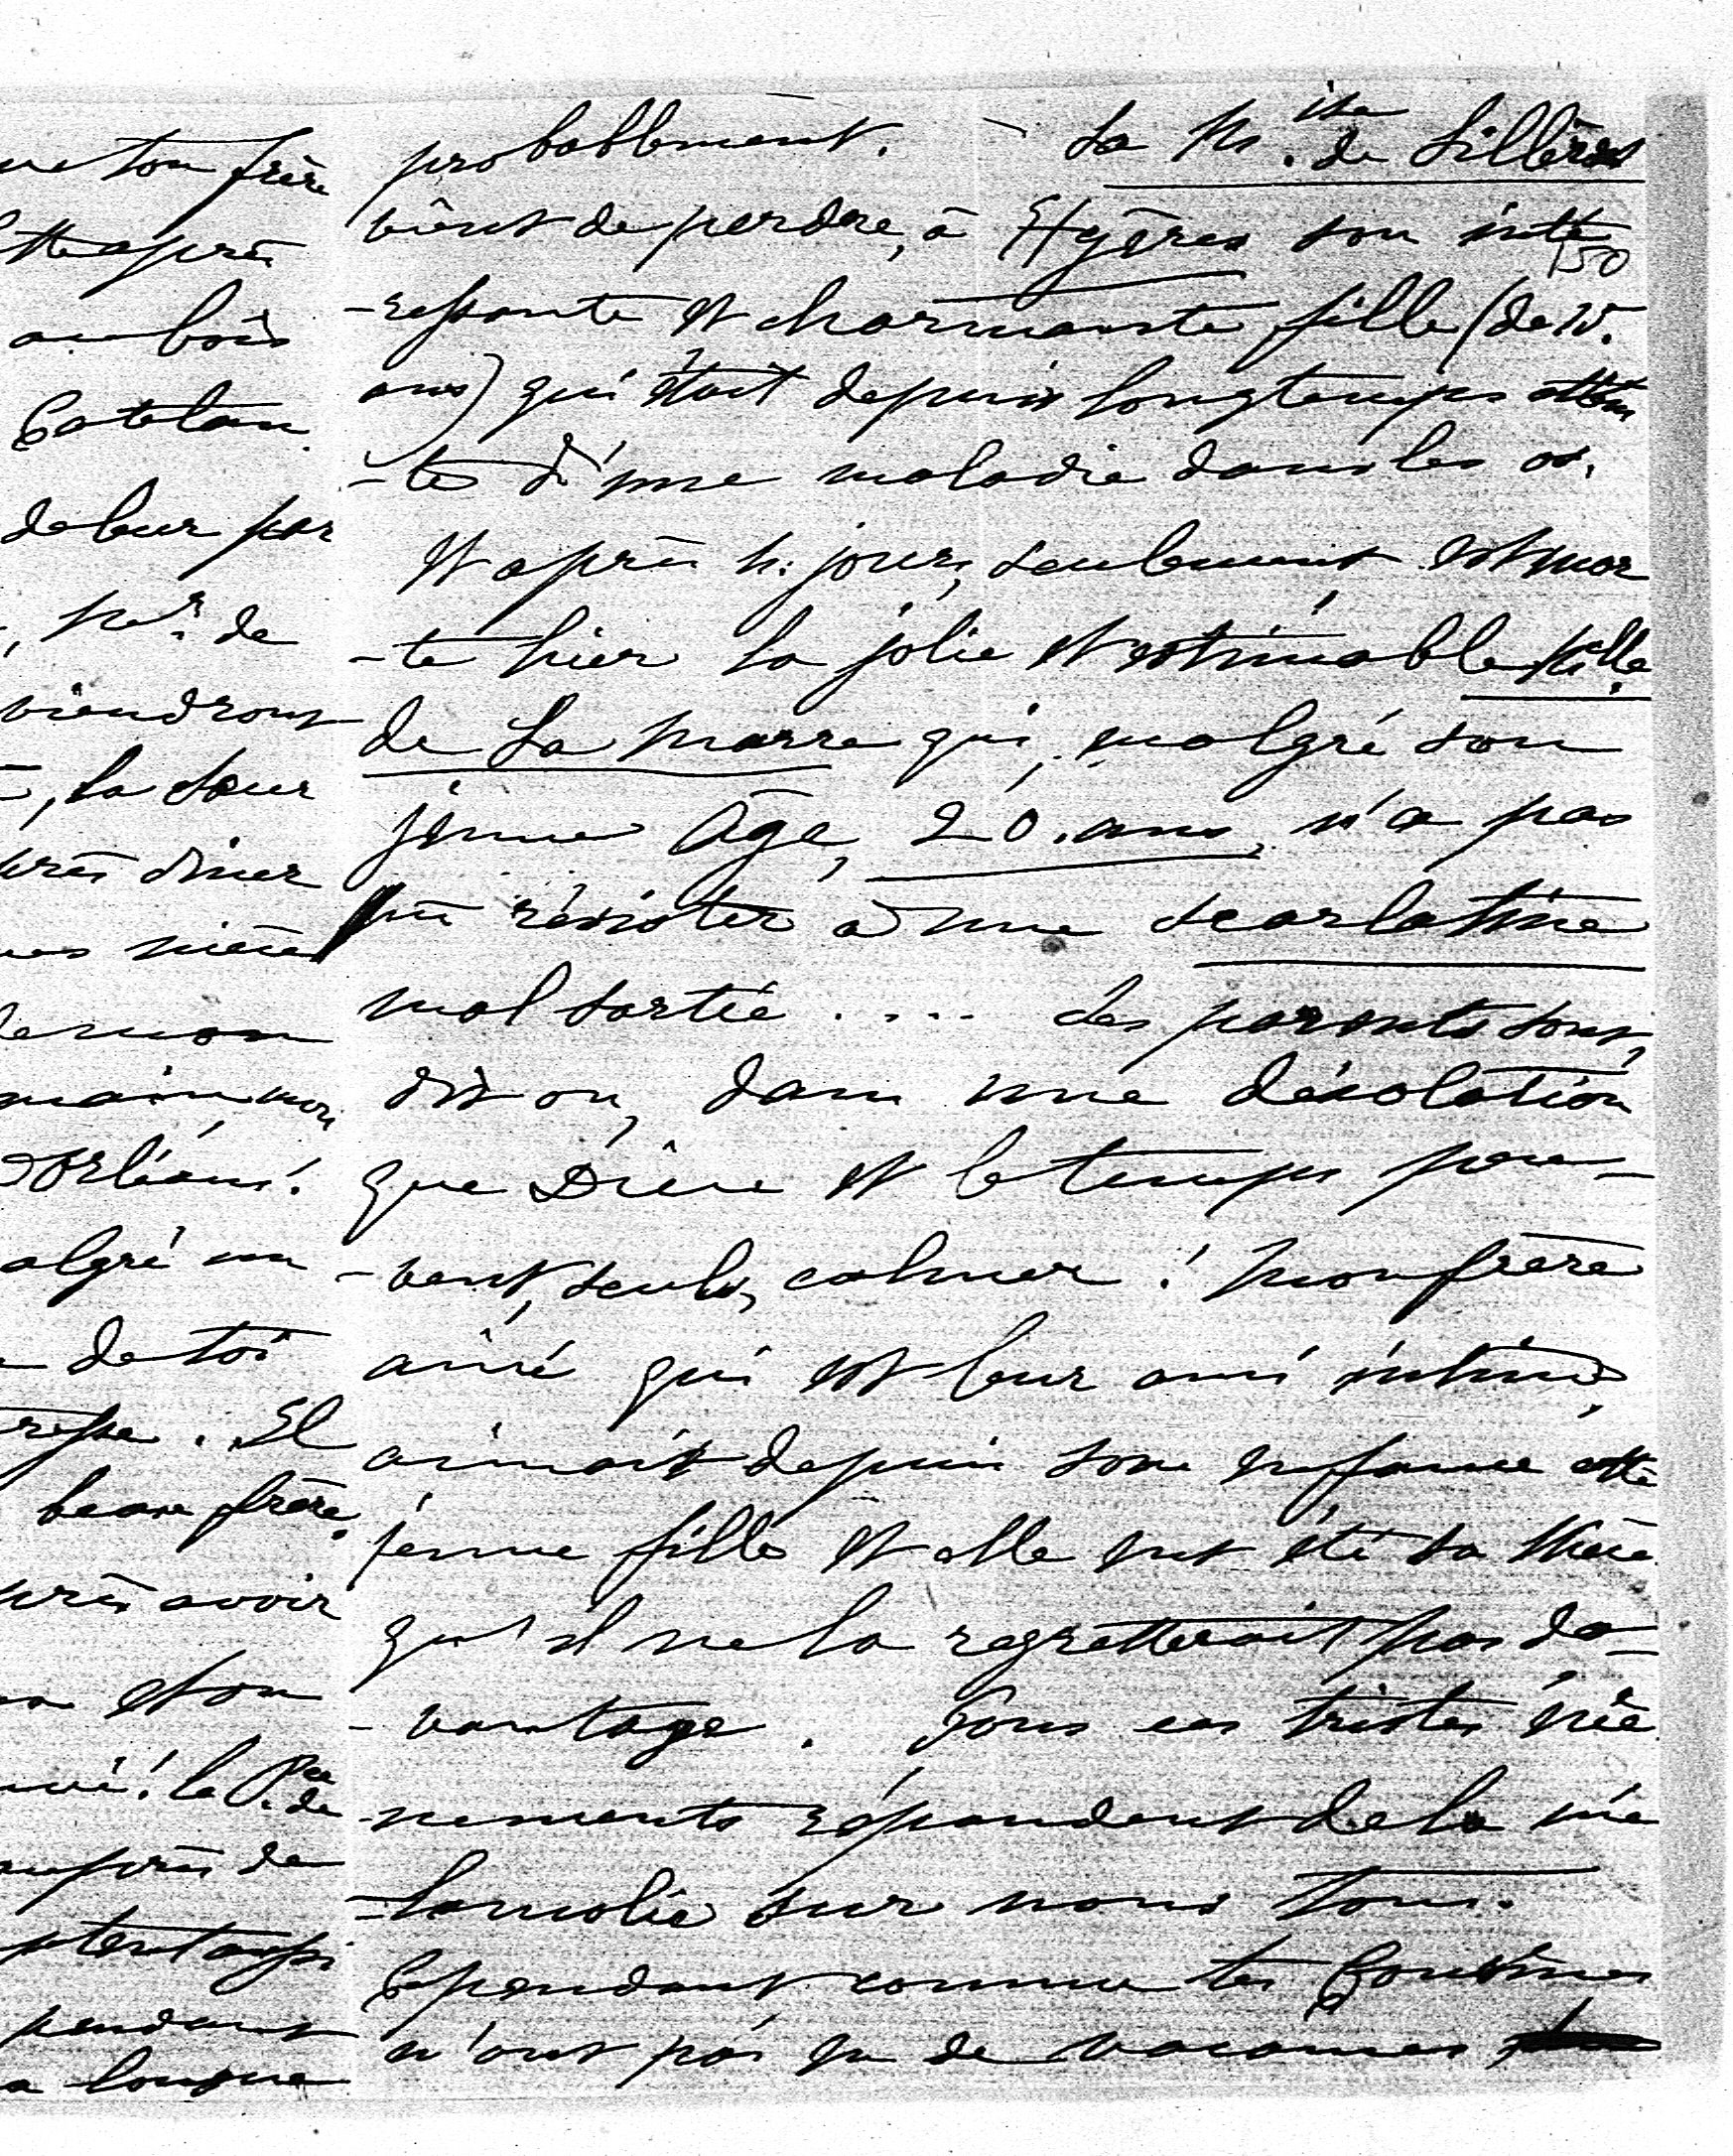 ue ton frère
tte après
au bois
Catelan.
de leur par
, Mr. de
viendront
, la sœur
près diner
es nièces
demon
main, mon
d'orléans!
algré un
de toi
resse. Il
beau frère.
près avoir
et son
! le Pce. de
auprès de
ptent aussi
pendant
a longue
probablement. La Mise. de Sillères
vient de perdre, à Hyères son inté
150
-ressante et charmante fille (de 15.
ans) qui était depuis longtemps attein
-te d'une maladie dans les os.
Et après 4. jours, seulement est mor
-te hier la jolie et estimable Melle.
de La Marre qui, malgré son
jeune âge, 20. ans, n'a pas
pû résister à une scarlatine
mal sortie .... Les parents sont,
dit on, dans une désolation
que Dieu et le temps peu-
-vent, seuls, calmer! Mon frère
ainé qui est leur ami intime,
aimait depuis son enfance cette
jeune fille et elle eut été sa nièce
qu'il ne la regretterait pas da-
-vantage. Tous ces tristes évè
-nements répandent de la mé
-lancolie sur nous tous.
Cependant comme tes Cousines
n'ont pas eu de vacances